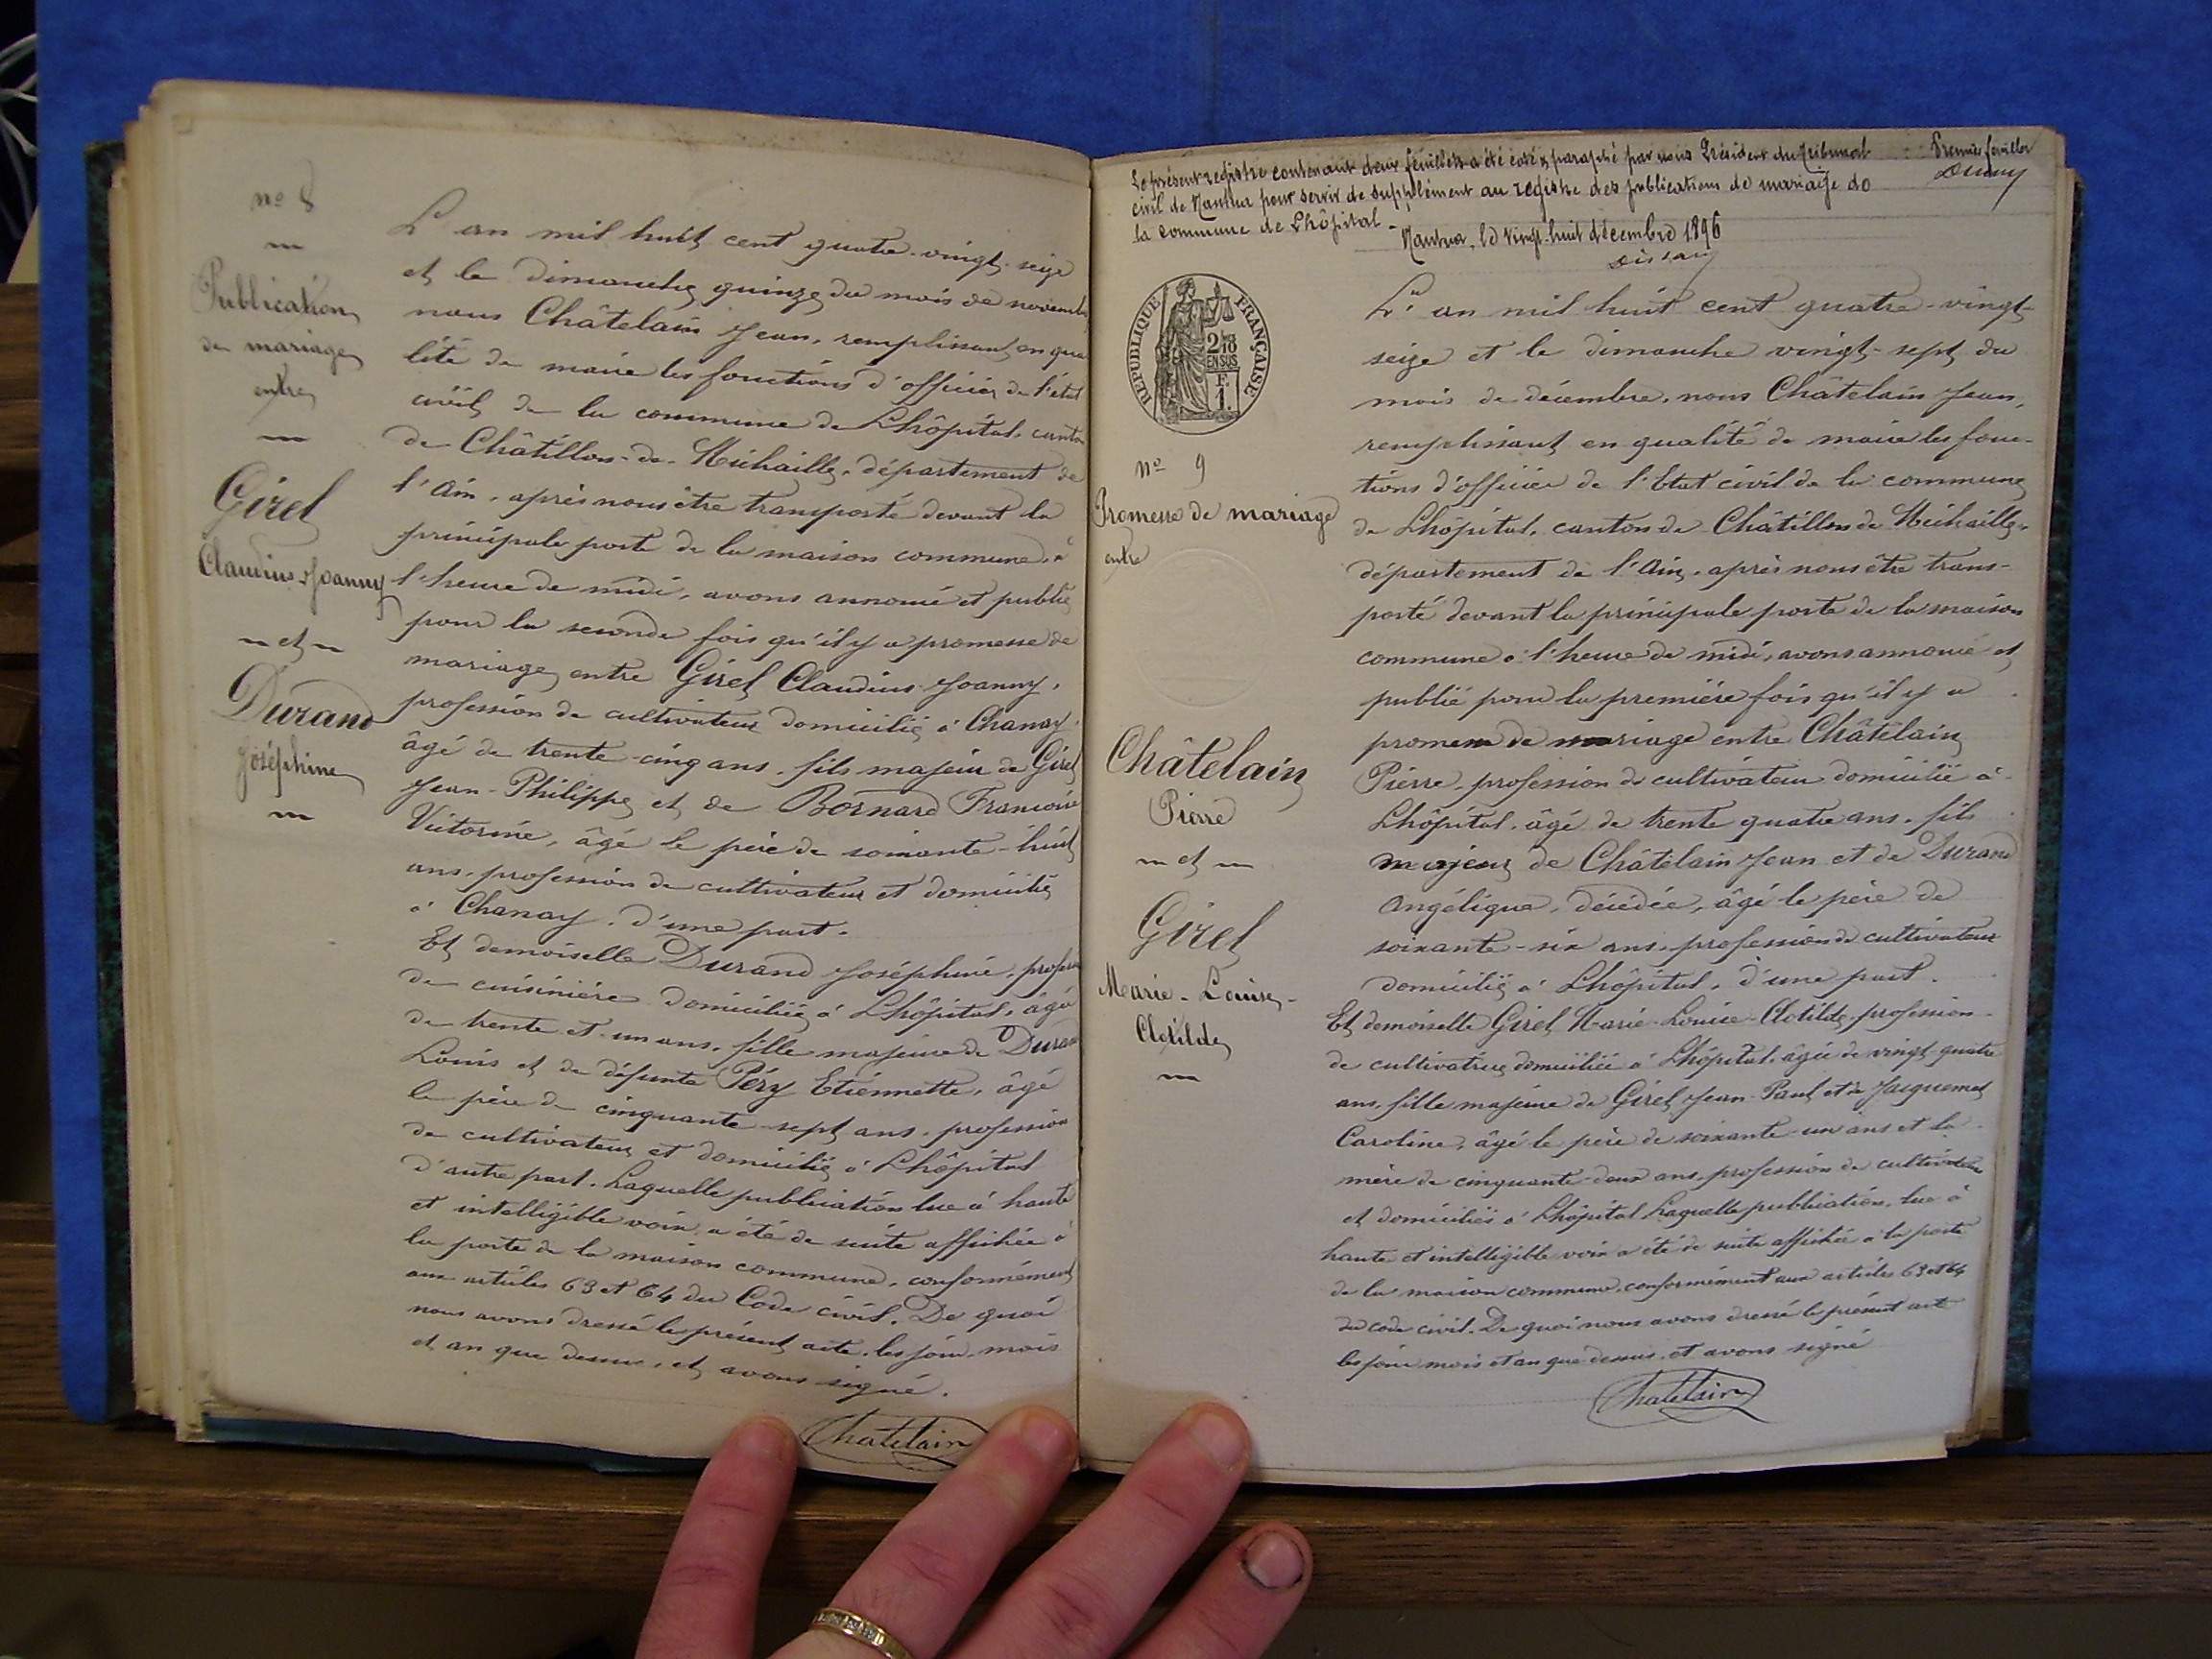 nº 8
Publication
de mariage
entre
Girel
Claudius Joanny
et
Durand
Joséphine
L'an mil huit cent quatre-vingt-seize
et le dimanche quinze du mois de novembre
nous Châtelain Jean, remplissant en qua
lité de maire les fonctions d'officier de l'état
civil de la commune de Lhôpital, canton
de Châtillon-de-Michaille, département de
l'Ain, après nous être transporté devant la
principale porte de la maison commune, à
l'heure de midi, avons annoncé et publié
pour la seconde fois qu'il y a promesse de
mariage entre Girel Claudius Joanny,
profession de cultivateur domicilié à Chanay,
âgé de trente-cinq ans, fils majeur de Girel
Jean-Philippe et de Bornard Françoise
Victorine, âgé le père de soixante-huit
ans, profession de cultivateur et domicilié
à Chanay, d'une part.
Et demoiselle Durand Joséphine, profession
de cuisinière domiciliée à Lhôpital, âgée
de trente et un ans, fille majeure de Durand
Louis et de défunte Péry Etiennette, âgé
le père de cinquante-sept ans, profession
de cultivateur et domicilié à Lhôpital
d'autre part. Laquelle publication lue à haute
et intelligible voix, a été de suite affichée à
la porte de la maison commune, conformément
aux articles 63 et 64 du Code civil. De quoi
nous avons dressé le présent acte, les jour, mois
et an que dessus, et avons signé.
Chatelain
Le présent registre contenant deux feuillets a été coté & paraphé par nous Président du tribunal
civil de Nantua pour servir de supplément au registre des publications de mariage de
la commune de Lhôpital.
Nantua, le vingt-huit décembre 1896
Premier feuillet
RÉPUBLIQUE FRANÇAISE
2/10
EN SUS
F.
1.
nº 9
Promesse de mariage
entre
Châtelain
Pierre
et
Girel
Marie-Louise-
Clotilde
L'an mil huit cent quatre-vingt-
seize et le dimanche vingt-sept du
mois de décembre, nous Châtelain Jean,
remplissant en qualité de maire les fonc-
tions d'officier de l'Etat civil de la commune
de Lhôpital, canton de Châtillon de Michaille,
département de l'Ain, après nous être trans-
porté devant la principale porte de la maison
commune à l'heure de midi, avons annoncé et
publié pour la première fois qu'il y a
promesse de mariage entre Châtelain
Pierre, profession de cultivateur domicilié à
Lhôpital, âgé de trente quatre ans, fils
majeur de Châtelain Jean et de Durand
Angélique, décédée, âgé le père de
soixante-six ans, profession de cultivateur
domicilié à Lhôpital, d'une part.
Et demoiselle Girel Marie-Louise-Clotilde, profession
de cultivatrice domiciliée à Lhôpital, âgée de vingt-quatre
ans, fille majeure de Girel Jean-Paul et de Jacquemet
Caroline, âgé le père de soixante-un ans et la
mère de cinquante-deux ans, profession de cultivateurs
et domiciliés à Lhôpital. Laquelle publication, lue à
haute et intelligible voix a été de suite affichée à la porte
de la maison commune, conformément aux articles 63 et 64
du code civil. De quoi nous avons dressé le présent acte
les jour mois et an que dessus, et avons signé
Chatelain